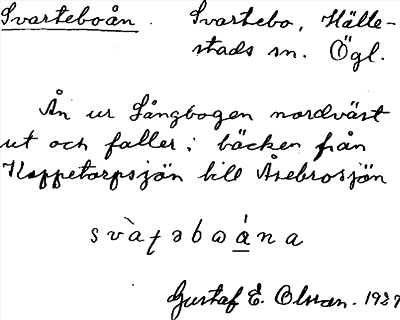 Svarteboån. Svartebo, Hälle-
stads sn. Ögl.
Ån ur Långbogen nordväst
ut och faller i bäcken från
Koppetorpsjön till Åsebrosjön
svàƭəbωánа
Gustaf E. Olsson.